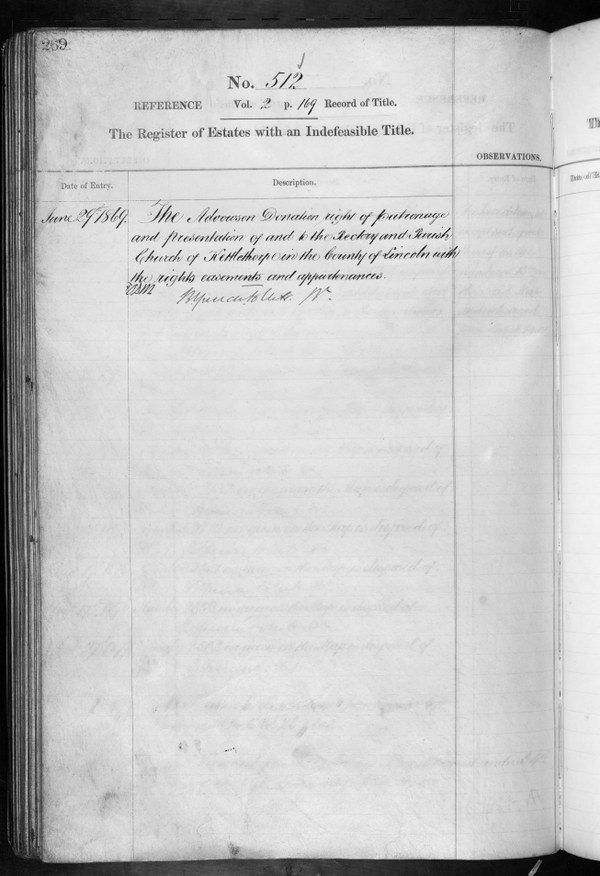 269
No. 512
REFERENCE Vol. 2 p. 169 Record of Title.
The Register of Estates with an Indefeasible Title.
OBSERVATIONS.
Date of Entry. Description.
June 29th 1869. The Advowson Donation right of patronage
and presentation of and to the Rectory and Parish
Church of Kettlethorpe in the County of Lincoln with
the rights easements and appurtenances.